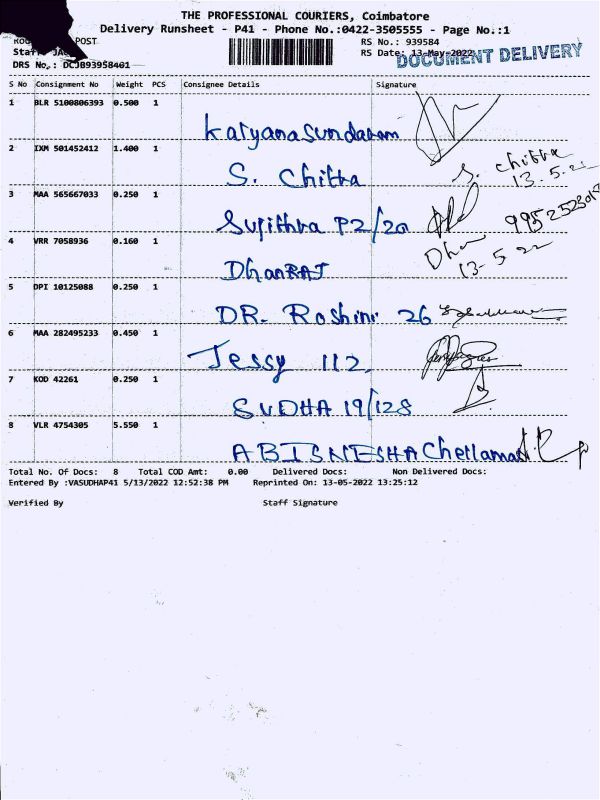 THE PROFESSIONAL COURIERS, Coimbatore
Delivery Runsheet - P41 - Phone No.:0422-3505555 - Page No.:1
POST
RS No.: 939584
RS Date: 13-May-2022
DOCUMENT DELIVERY
DRS No.: DCJB93958401
S No Consignment No Weight PCS Consignee Details Signature
1 BLR 5100806393 0.500 1
Kalyanasundaram
2 IXM 501452412 1.400 1
S. Chitra
S. Chitra
13.5.22
3 MAA 565667033 0.250 1
Sujithra P2/20
4 VRR 7058936 0.160 1
DhanRAJ
13-5-22
5 OPI 10125088 0.250 1
DR. Roshini 26
6 MAA 282495233 0.450 1
Jessy 112
7 KOD 42261 0.250 1
SUDHA 19/128
8 VLR 4754305 5.550 1
ABISNESHA Chellamal
Total No. Of Docs: 8 Total COD Amt: 0.00 Delivered Docs: Non Delivered Docs:
Entered By :VASUDHAP41 5/13/2022 12:52:38 PM Reprinted On: 13-05-2022 13:25:12
Verified By Staff Signature